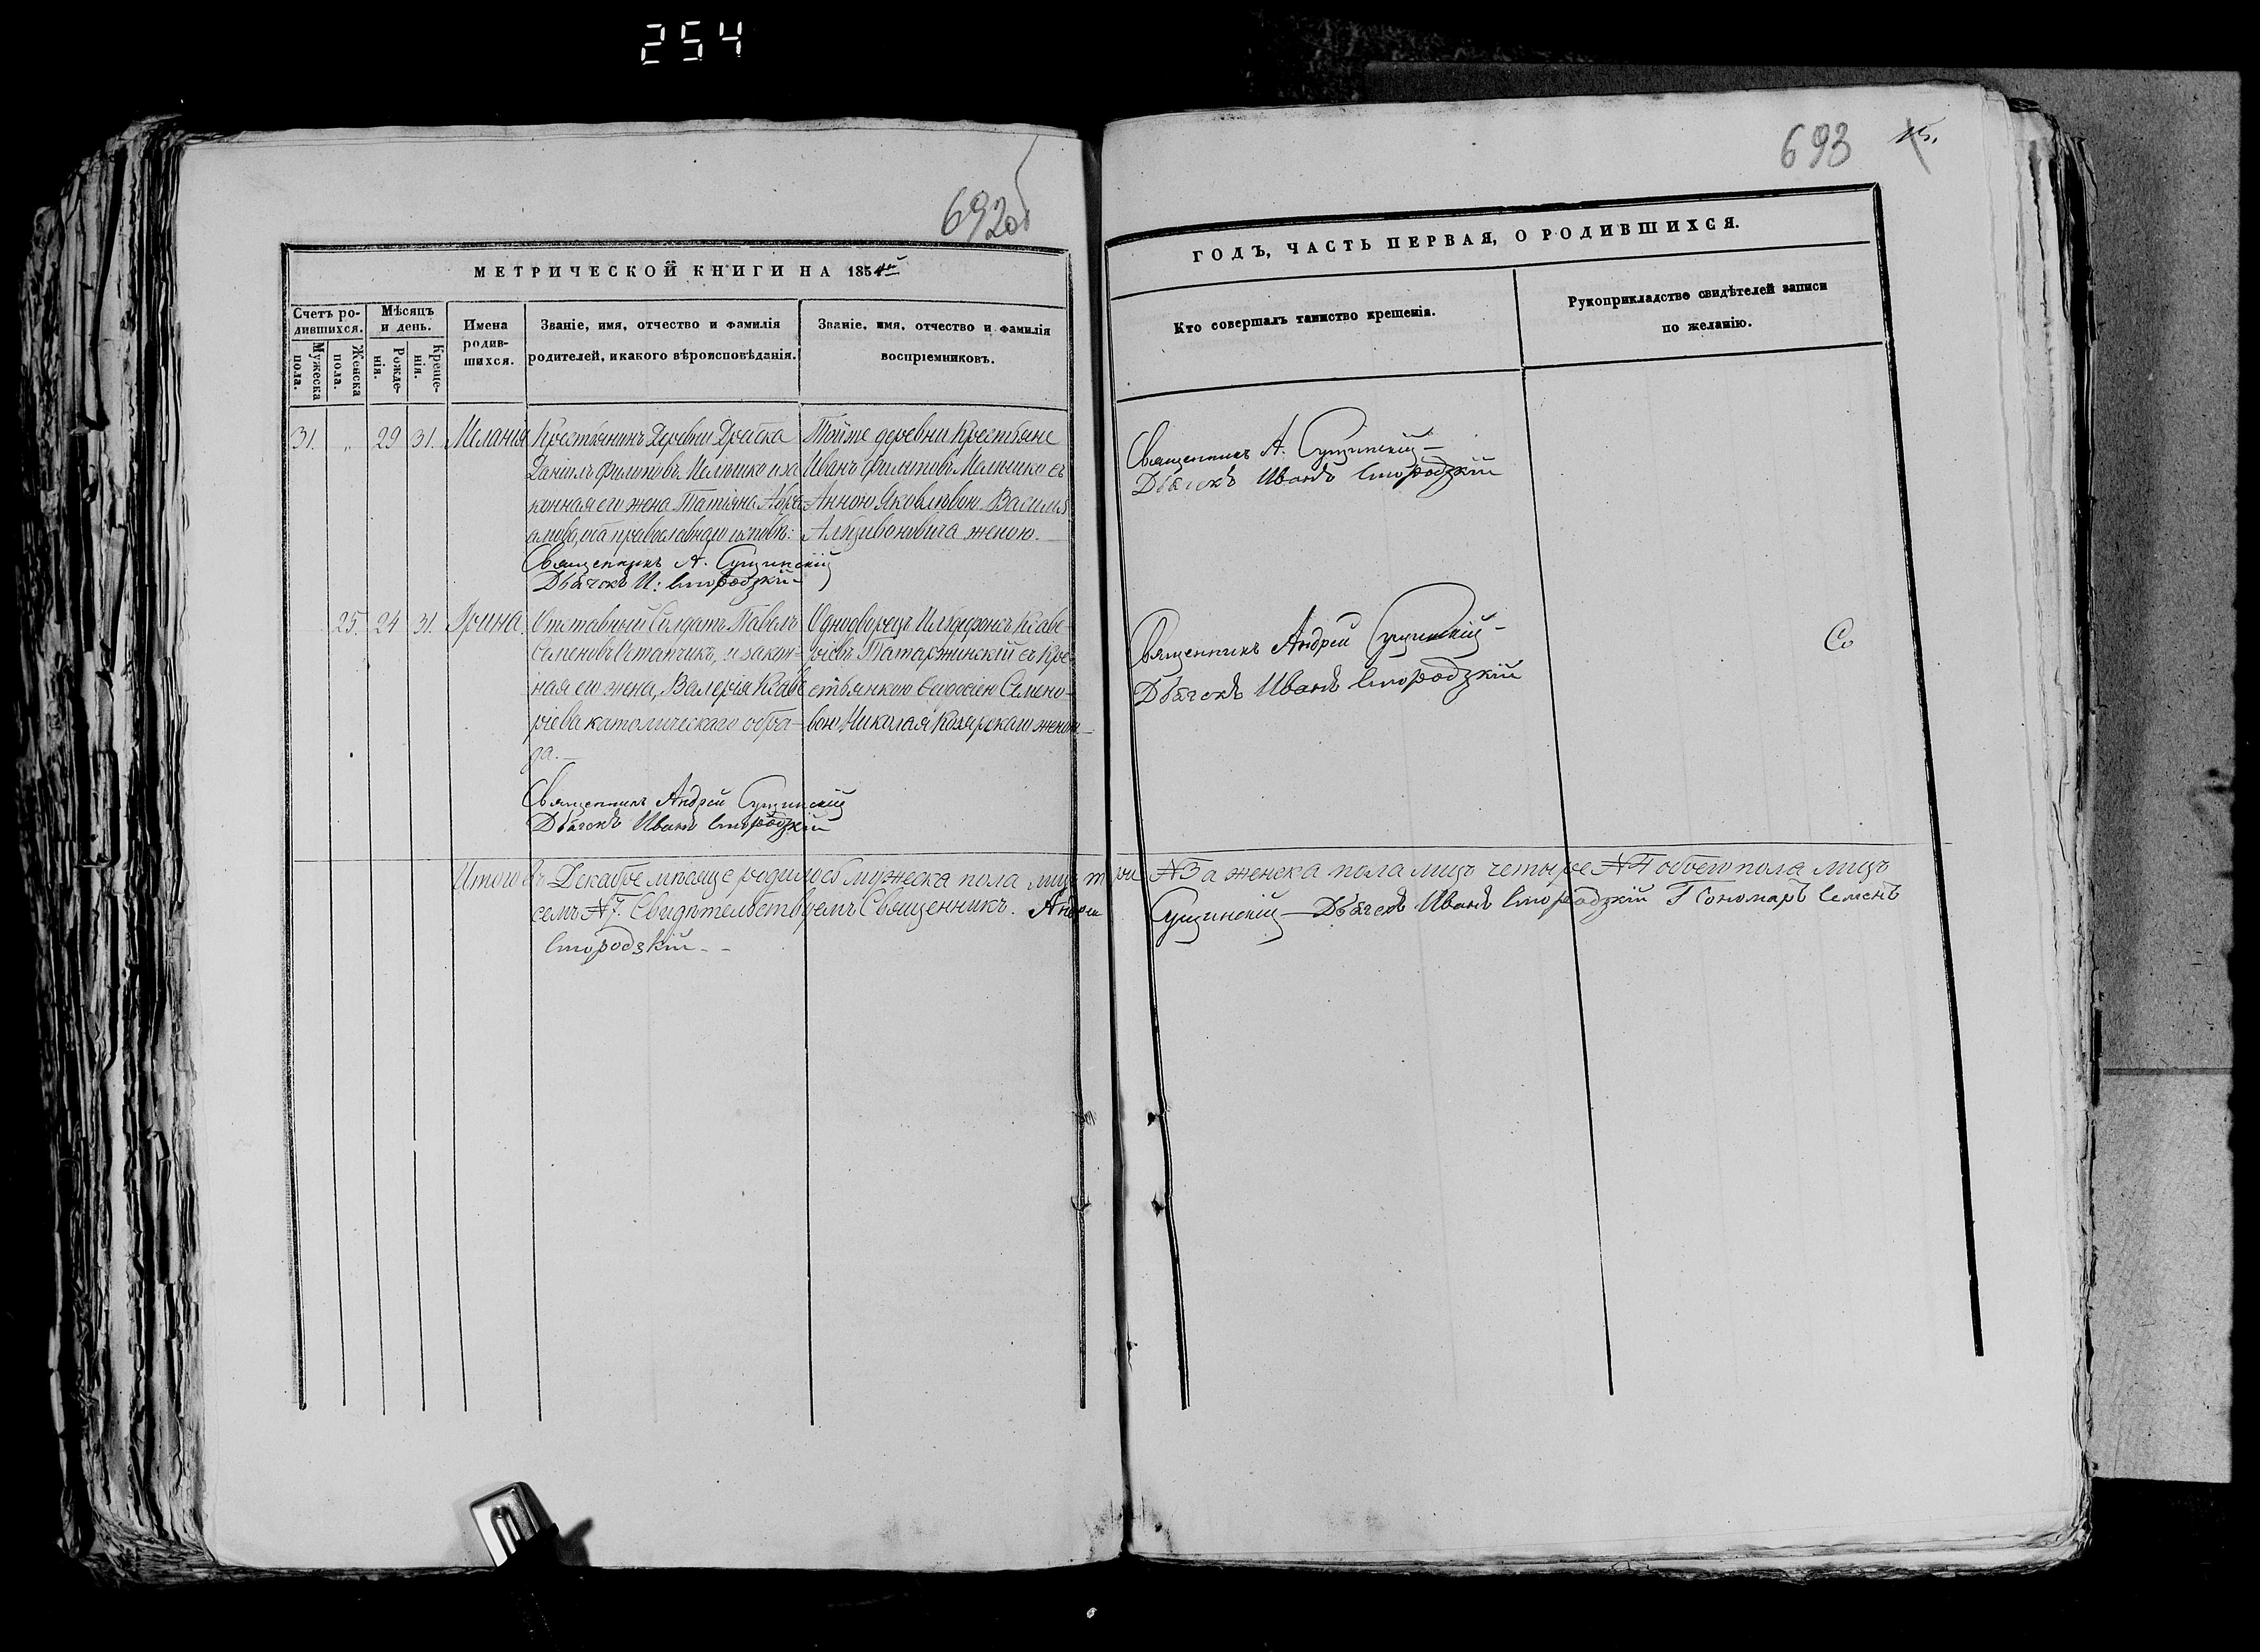 254
692об
МЕТРИЧЕСКОЙ КНИГИ НА 1854й
Счетъ родившихся.
Мужеска пола.
Женска пола.
Мѣсяцъ и день.
Рожденія.
Крещенія.
Имена родившихся.
Званіе, имя, отчество и фамилія
родителей, и какого вѣроисповѣданія.
Званіе, имя, отчество и фамилія
воспріемниковъ.
31. " 29 31. Меланія
Крестьянинъ Деревни
Даніилъ Филиповъ и за
конная его жена Татіана Авра
амова, оба православнаго исповѣ:
Священникъ А. Сущинскій
Дьячокъ И:
Тойже деревни Крестьяне
Иванъ Филиповъ съ
Анною Яковлевою Василія
женою.
25. 24 31. Ирина.
Отставный Солдатъ Павелъ
Семеновъ и закон-
ная его жена, Валерія Ксаве
ріева католическаго обря-
да.
Священникъ Андрей Сущинскій
Дьячокъ Иванъ
Однодворецъ Ксаве-
ріевъ Татаржинскій съ Кре-
стьянкою Ѳеодосіею Семено-
вою Николая Козярскаго женою
Итого въ Декабре мѣсяце родилось мужеска пола лицъ три
семъ №7. Свидѣтельствуемъ Священникъ. Андрей
693
15.
ГОДЪ, ЧАСТЬ ПЕРВАЯ, О РОДИВШИХСЯ.
Кто совершалъ таинство крещенія.
Рукоприкладство свидѣтелей записи
по желанію.
Священникъ А. Сущинскій
Дьячокъ Иванъ
Священникъ Андрей Сущинскій
Дьячокъ Иванъ
№3 а женска пола лицъ четыре №4 обоего пола лицъ
Сущинскій Дьячокъ Иванъ Пономарь Семенъ